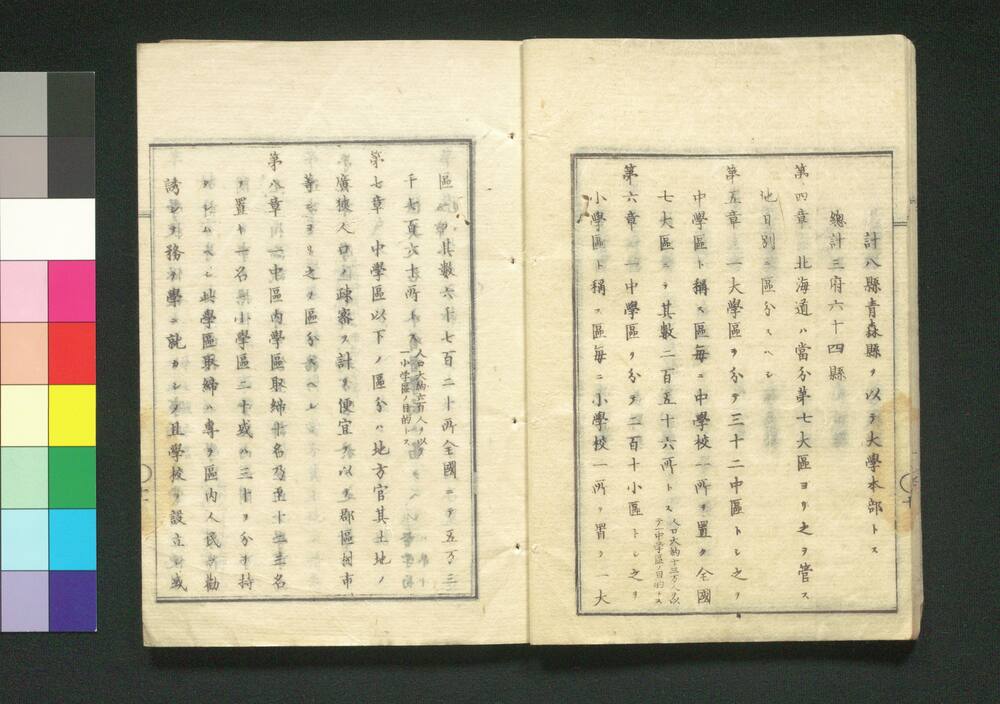 計八縣青森縣ヲ以テ大學本部トス
總計三府六十四縣
第四章 北海道ハ當分第七大區ヨリ之ヲ管ス
他日別ニ區分スヘシ
第五章 一大學區ヲ分テ三十二中區トシ之ヲ
中學區ト稱ス區毎ニ中學校一所ヲ置ク全國
七大區ニテ其數二百五十六所トス 人口大約十三万人ヲ以
テ一中学區ノ目的トス
第六章 一中學區ヲ分テ二百十小區トシ之ヲ
小學區ト稱ス區毎ニ小學校一所ヲ置ク一大
區ニテ其數六千七百二十所全國ニテ五万三
千七百六十所トス 人口大約六百人ヲ以テ
一小学區ノ目的トス
第七章 中學區以下ノ區分ハ地方官其土地ノ
廣狭人口ノ疎密ヲ計リ便宜ヲ以テ郡區村市
等ニヨリ之ヲ區分スヘシ
第八章 一中區内學區取締十名乃至十二三名
ヲ置キ一名ニ小學區二十或ハ三十ヲ分チ持
タシムヘシ此學區取締ハ専ラ區内人民ヲ勸
誘シテ務テ學ニ就カシメ且學校ヲ設立シ或